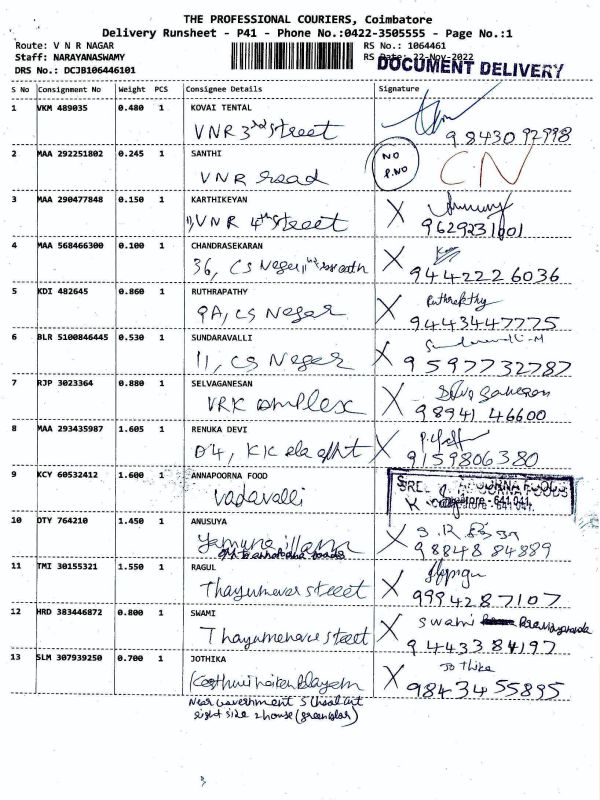 THE PROFESSIONAL COURIERS, Coimbatore
Delivery Runsheet - P41 - Phone No.:0422-3505555 - Page No.:1
Route: V N R NAGAR
RS No.: 1064461
Staff: NARAYANASWAMY
RS Date: 22-Nov-2022
DRS No.: DCJB106446101
DOCUMENT DELIVERY
S No Consignment No Weight PCS Consignee Details Signature
1 VKM 489035 0.480 1 KOVAI TENTAL
VNR 3rd street 9843092998
2 MAA 292251802 0.245 1 SANTHI
NO P.NO CN
VNR road
3 MAA 290477848 0.150 1 KARTHIKEYAN
VNR 4th street X 9629231001
4 MAA 568466300 0.100 1 CHANDRASEKARAN
36, CS Nagar X 9442226036
5 KDI 482645 0.860 1 RUTHRAPATHY
9A, CS Nagar X 9443447775
6 BLR 5100846445 0.530 1 SUNDARAVALLI
11, CS Nagar X 9597732787
7 RJP 3023364 0.880 1 SELVAGANESAN
VRK complex X 9894146600
8 MAA 293435987 1.605 1 RENUKA DEVI
D4, KK X 9159806380
9 KCY 60532412 1.600 1 ANNAPOORNA FOOD
Vadavalli
10 DTY 764210 1.450 1 ANUSUYA
Yamuna illam X 9884884889
11 TMI 30155321 1.550 1 RAGUL
Thayumanavar street X 9994287107
12 HRD 383446872 0.800 1 SWAMI
swami
Thayumanava street X 9443384197
13 SLM 307939250 0.700 1 JOTHIKA
Jothika
X 9843455895
Near Government School
right side 2 house (green color)